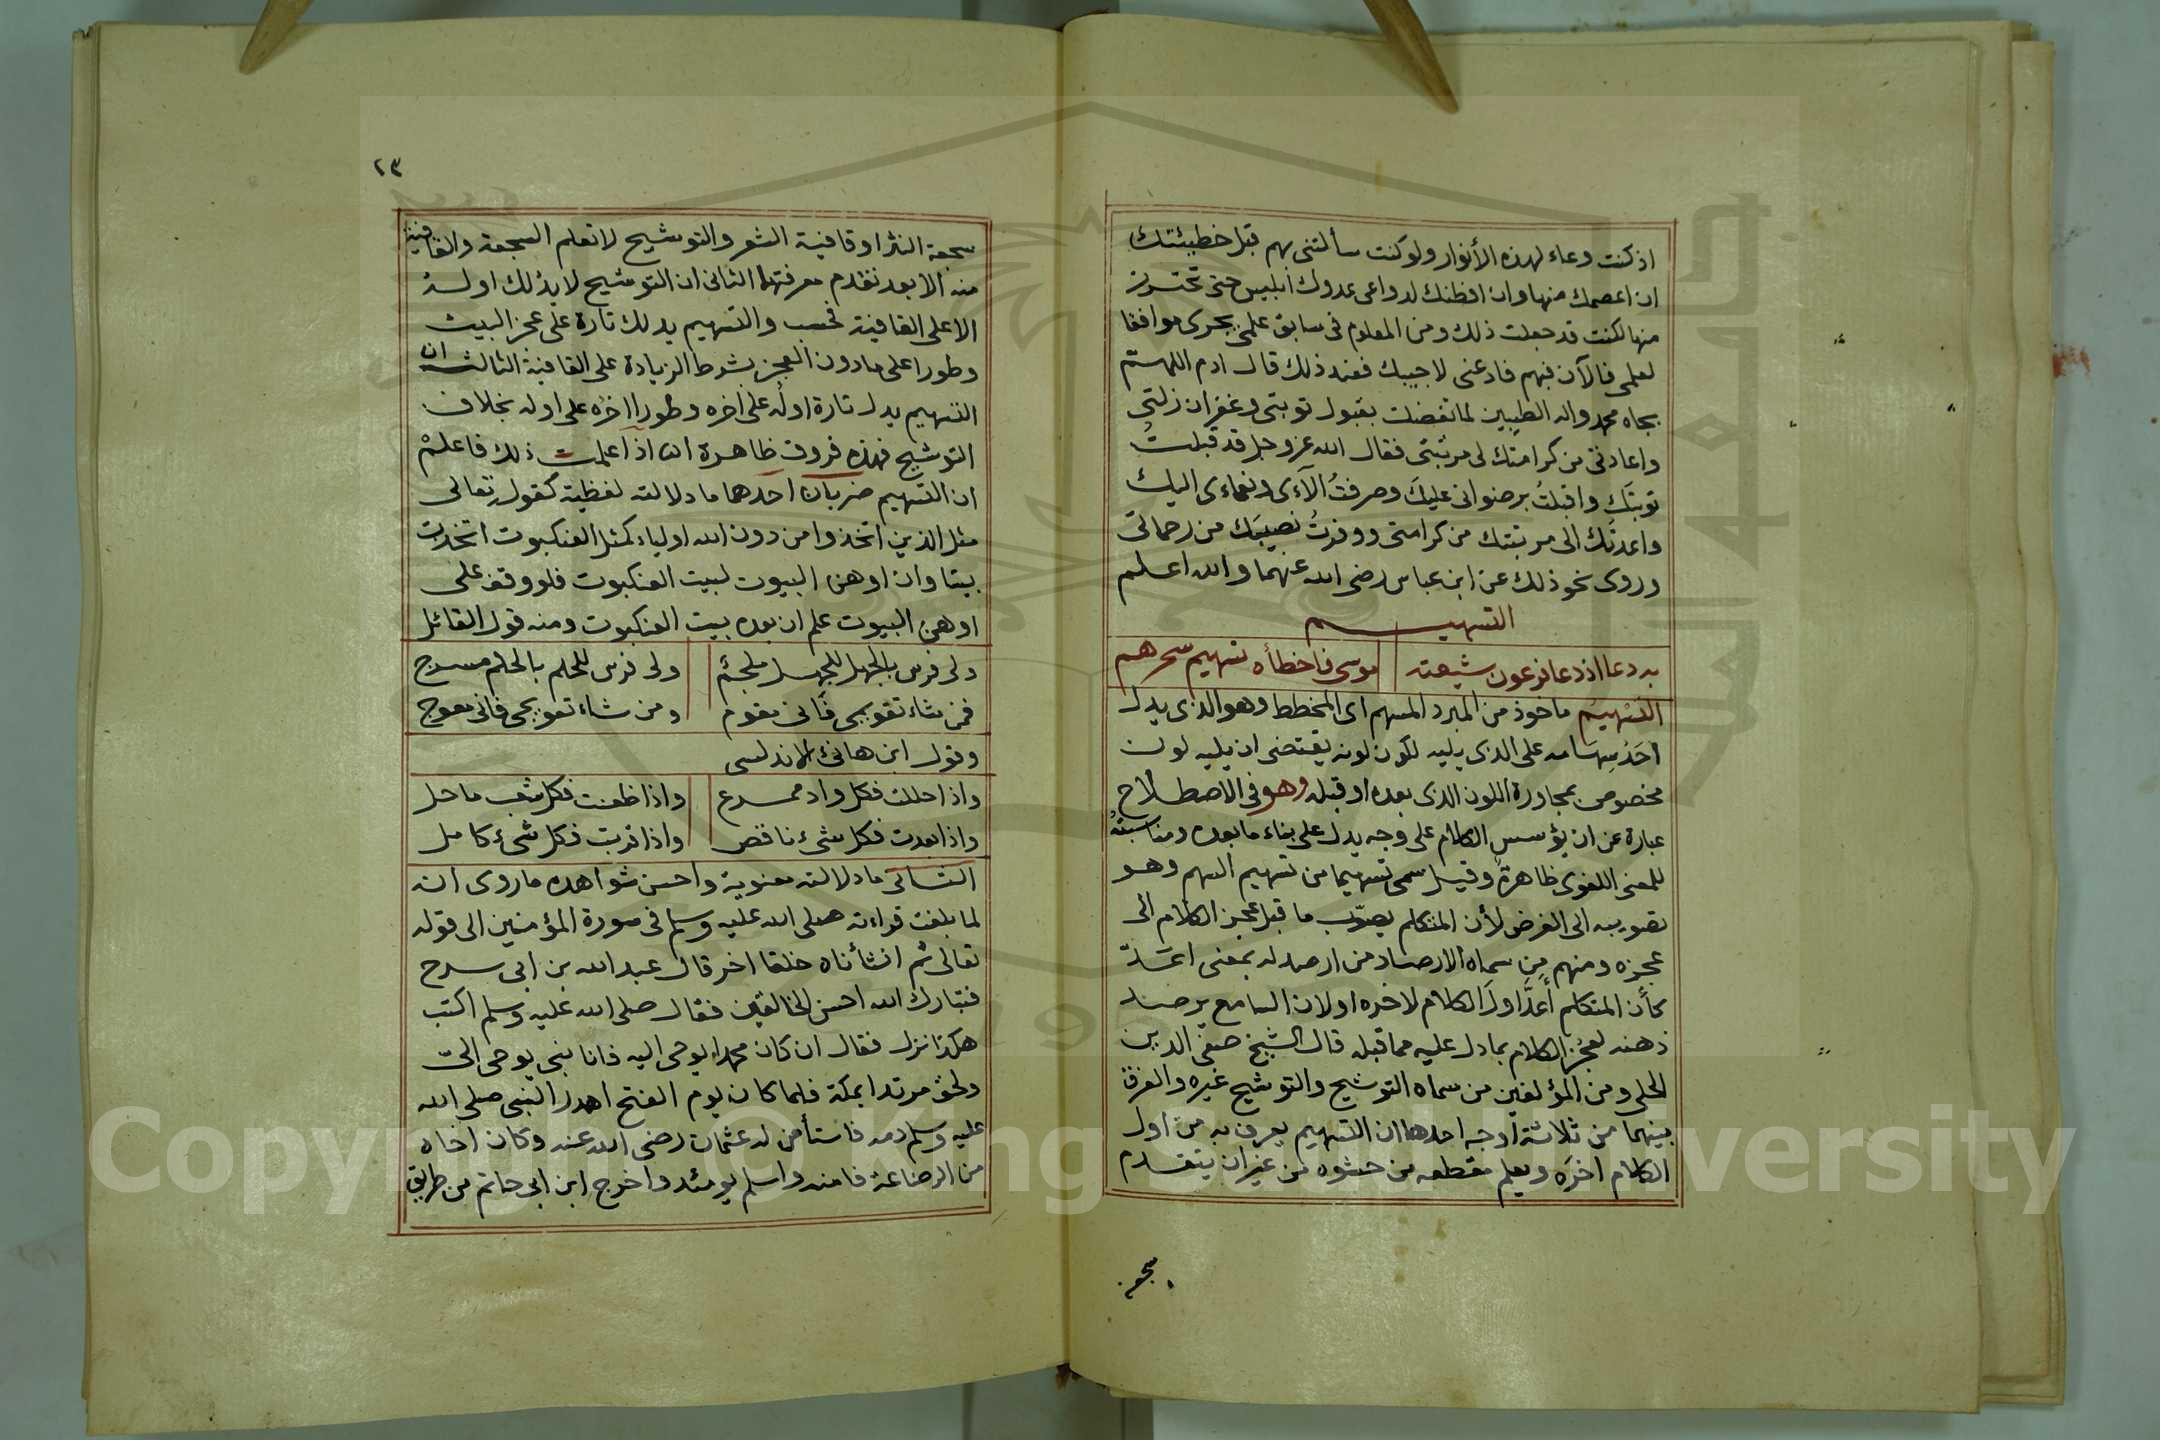 اذ كنت وعاء لهذه الأنوار ولو كنت سألتنى بهم قبل خطيئتك
ان اعصمك منها وان افطنك لدواعى عدوك ابليس حتى تحترز
منها لكنت قد جعلت ذلك ومن المعلوم فى سابق علمى يجرى موافقا
لعلمى فالآن فبهم فادعنى لاجيبك فعند ذلك قال ادم اللهم
بجاه محمد واله الطيبين لما تفضلت بقبول توبتى وغفران زلتى
واعادتى من كرامتك لى مرتبتى فقال الله عز وجل قد قبلتُ
توبتَك واقبلتُ برضوانى عليكَ وصرفتُ الآءى ونعماءى اليك
واعدتُك الى مرتبتك من كرامتى ووفرتُ نصيبَك من رحماتى
وروى نحو ذلك عن ابن عباس رضى الله عنهما والله اعلم
التسهيم
به دعا اذ دعا فرعون شيعته موسى فاخطأه تسهيم سحرهم
التسهيم ماخوذ من المبرد المسهم اى المخطط وهو الذى يدل
احَدُ سِهَامه على الذى يليه لكون لونه يقتضى ان يليه لون
مخصوص بمجاورة اللون الذى بعده او قبله وهو فى الاصطلاح
عبارة عن ان يؤسس الكلام على وجه يدل على بناء ما بعده ومناسبتُه
للمعنى اللغوى ظاهرةٌ وقيل سمى تسهيما من تسهيم السهم وهو
تصويبه الى الغرض لأن المتكلم يصوّب ما قبل عجز الكلام الى
عجزه ومنهم مِن سماه الارصاد من ارصد له بمعنى اعَدّ
كأن المتكلم أَعدَّ اولَ الكلام لاخره او لان السامع يرصد
ذهنه لعجُز الكلام بما دل عليه مما قبله قال الشيخ صفى الدين
الحلى ومن المؤلفين من سماه التوشيح والتوشيح غيره والفرق
بينهما من ثلاثة اوجه احدها ان التسهيم يعرف به من اول
الكلام اخرَه ويعلم مقطعه من حشوه من غير ان يتقدم
سجعة
٢٣
سجعة النثر او قافية الشعر والتوشيح لا تعلم السجعة والقافية
منه الا بعد تقدم معرفتها الثانى ان التوشيح لا يدُلك اولهُ
الا على القافية فحسب والتسهيم يدلك تارة على عجز البيت
وطورا على ما دون العجز بشرط الزيادة على القافية الثالث ان
التسهيم يدل تارة اولُه على اخره وطورا اخرُه على اوله بخلاف
التوشيح فهذه فروق ظاهرة اذا علمت ذلك فاعلمْ
ان التسهيم ضربان احدهما ما دلالته لفظية كقوله تعالى
مثل الذين اتخذوا من دون الله اولياء كمثل العنكبوت اتخذت
بيتا وان اوهن البيوت لبيت العنكبوت فلو وقف على
اوهن البيوت علم ان بعده بيت العنكبوت ومنه قول القائل
ولى فرس بالجهل للجهل ملجمٌ ولى فرس للحلم بالحلم مسرج
فمن شاء تقويمى فانى مقوم ومن شاء تعويجى فانى معوج
وقول ابن هانئ الاندلسى
واذا حللت فكل واد ممرع واذا ظعنت فكل شعب ماحل
واذا بعدت فكل شئ ناقص واذا قربت فكل شئ كامل
الثانى ما دلالته معنوية واحسن شواهده ما روى انه
لما بلغت قراءته صلى الله عليه وسلم فى سورة المؤمنين الى قوله
تعالى ثم انشأناه خلقا اخر قال عبد الله بن ابى سرح
فتبارك الله احسن الخالقين فقال صلى الله عليه وسلم اكتب
هكذا نزل فقال ان كان محمد يوحى اليه فانا نبى يوحى الىّ
ولحق مرتدا بمكة فلما كان يوم الفتح اهدر النبى صلى الله
عليه وسلم دمه فاستأمن له عثمان رضى الله عنه وكان اخاه
من الرضاعة فامنه واسلم يومئذ واخرج ابن ابى حاتم من طريق
Copyright © King Saud University